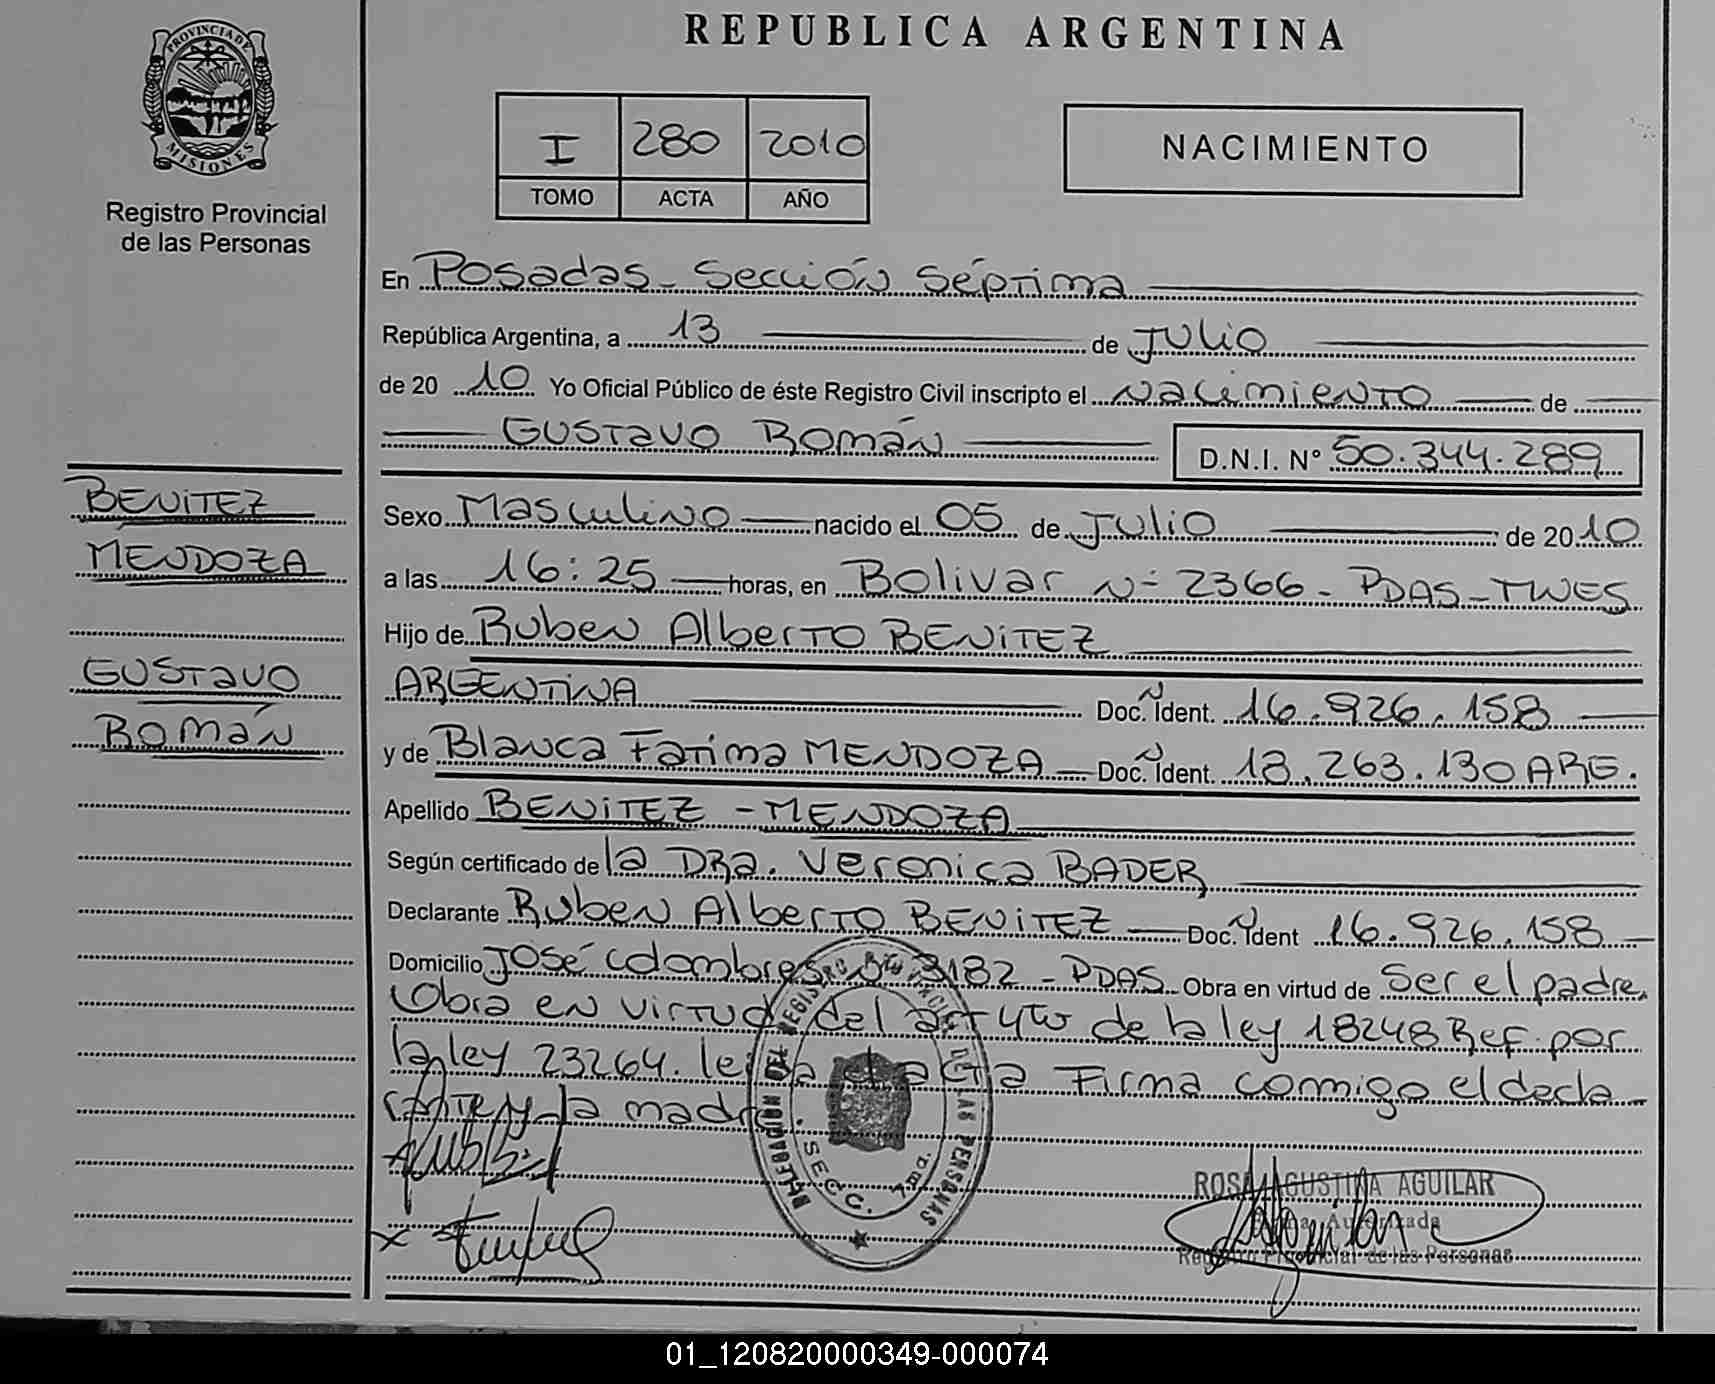 REPUBLICA ARGENTINA
PROVINCIA DE
MISIONES
Registro Provincial
de las Personas
I 280 2010
TOMO ACTA AÑO
NACIMIENTO
En Posadas - Sección Séptima
República Argentina, a 13 de Julio
de 20 10 Yo Oficial Público de éste Registro Civil inscripto el nacimiento de
Gustavo Román
D.N.I. N° 50.344.289
BENITEZ
MENDOZA
GUSTAVO
Román
Sexo Masculino nacido el 05 de Julio de 2010
a las 16:25 horas, en Bolivar N° 2366 - PDAS -
Hijo de Ruben Alberto BENITEZ
ARGENTINA Doc. Ident. N 16.926.158
y de Blanca Fatima MENDOZA Doc. Ident. N 18.263.130 ARG.
Apellido BENITEZ - MENDOZA
Según certificado de la DRa. Veronica BADER
Declarante Ruben Alberto BENITEZ Doc. Ident N 16.926.158
Domicilio José Colombres N° 3182 - PDAS Obra en virtud de Ser el padre.
Obra en virtud del art 4to de la ley 18248 Ref. por
la ley 23264. leida el acta Firma conmigo el decla
rante y la madre
DELEGACION DEL REGISTRO PROVINCIAL DE LAS PERSONAS
SECC. 7ma.
ROSA AGUSTINA AGUILAR
Firma Autorizada
Registro Provincial de las Personas
x
01_120820000349-000074